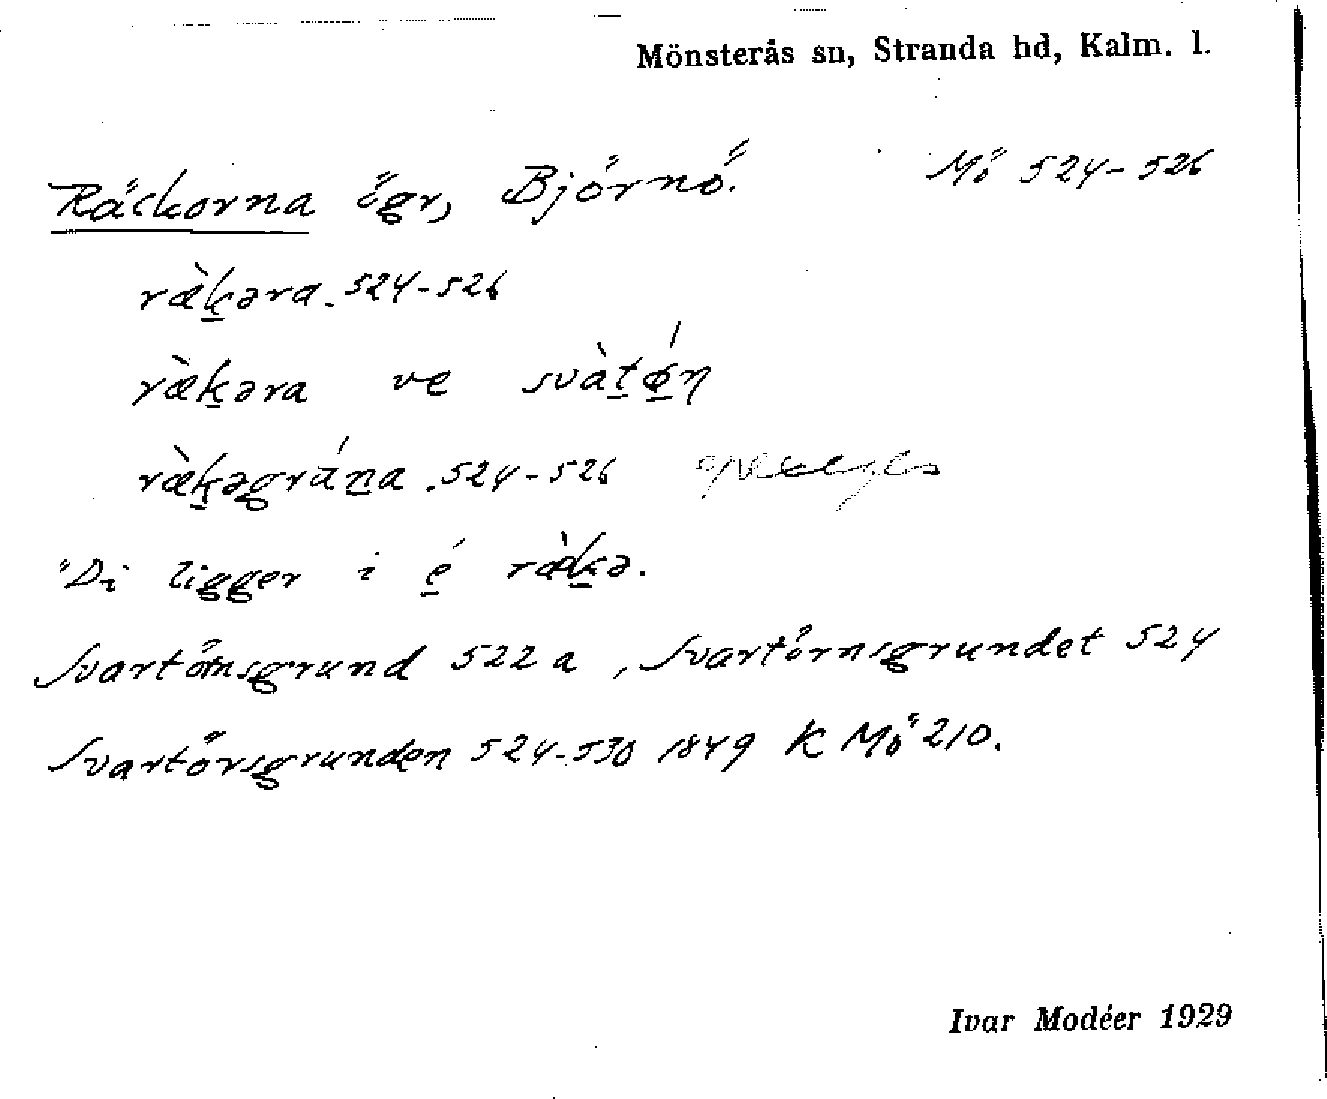 Mönsterås sn, Stranda hd, Kalm. l.
Räckorna ögr, Björnö. Mö 524-526
rækəra. 524-526
rækəra ve svàtǿn
rækəgrána. 524-526
"Di ligger i é rækə.
Svartörnsgrund 522 a, Svartörnsgrundet 524
Svartörsgrunden 524-530 1849 K Mö 210.
Ivar Modéer 1929